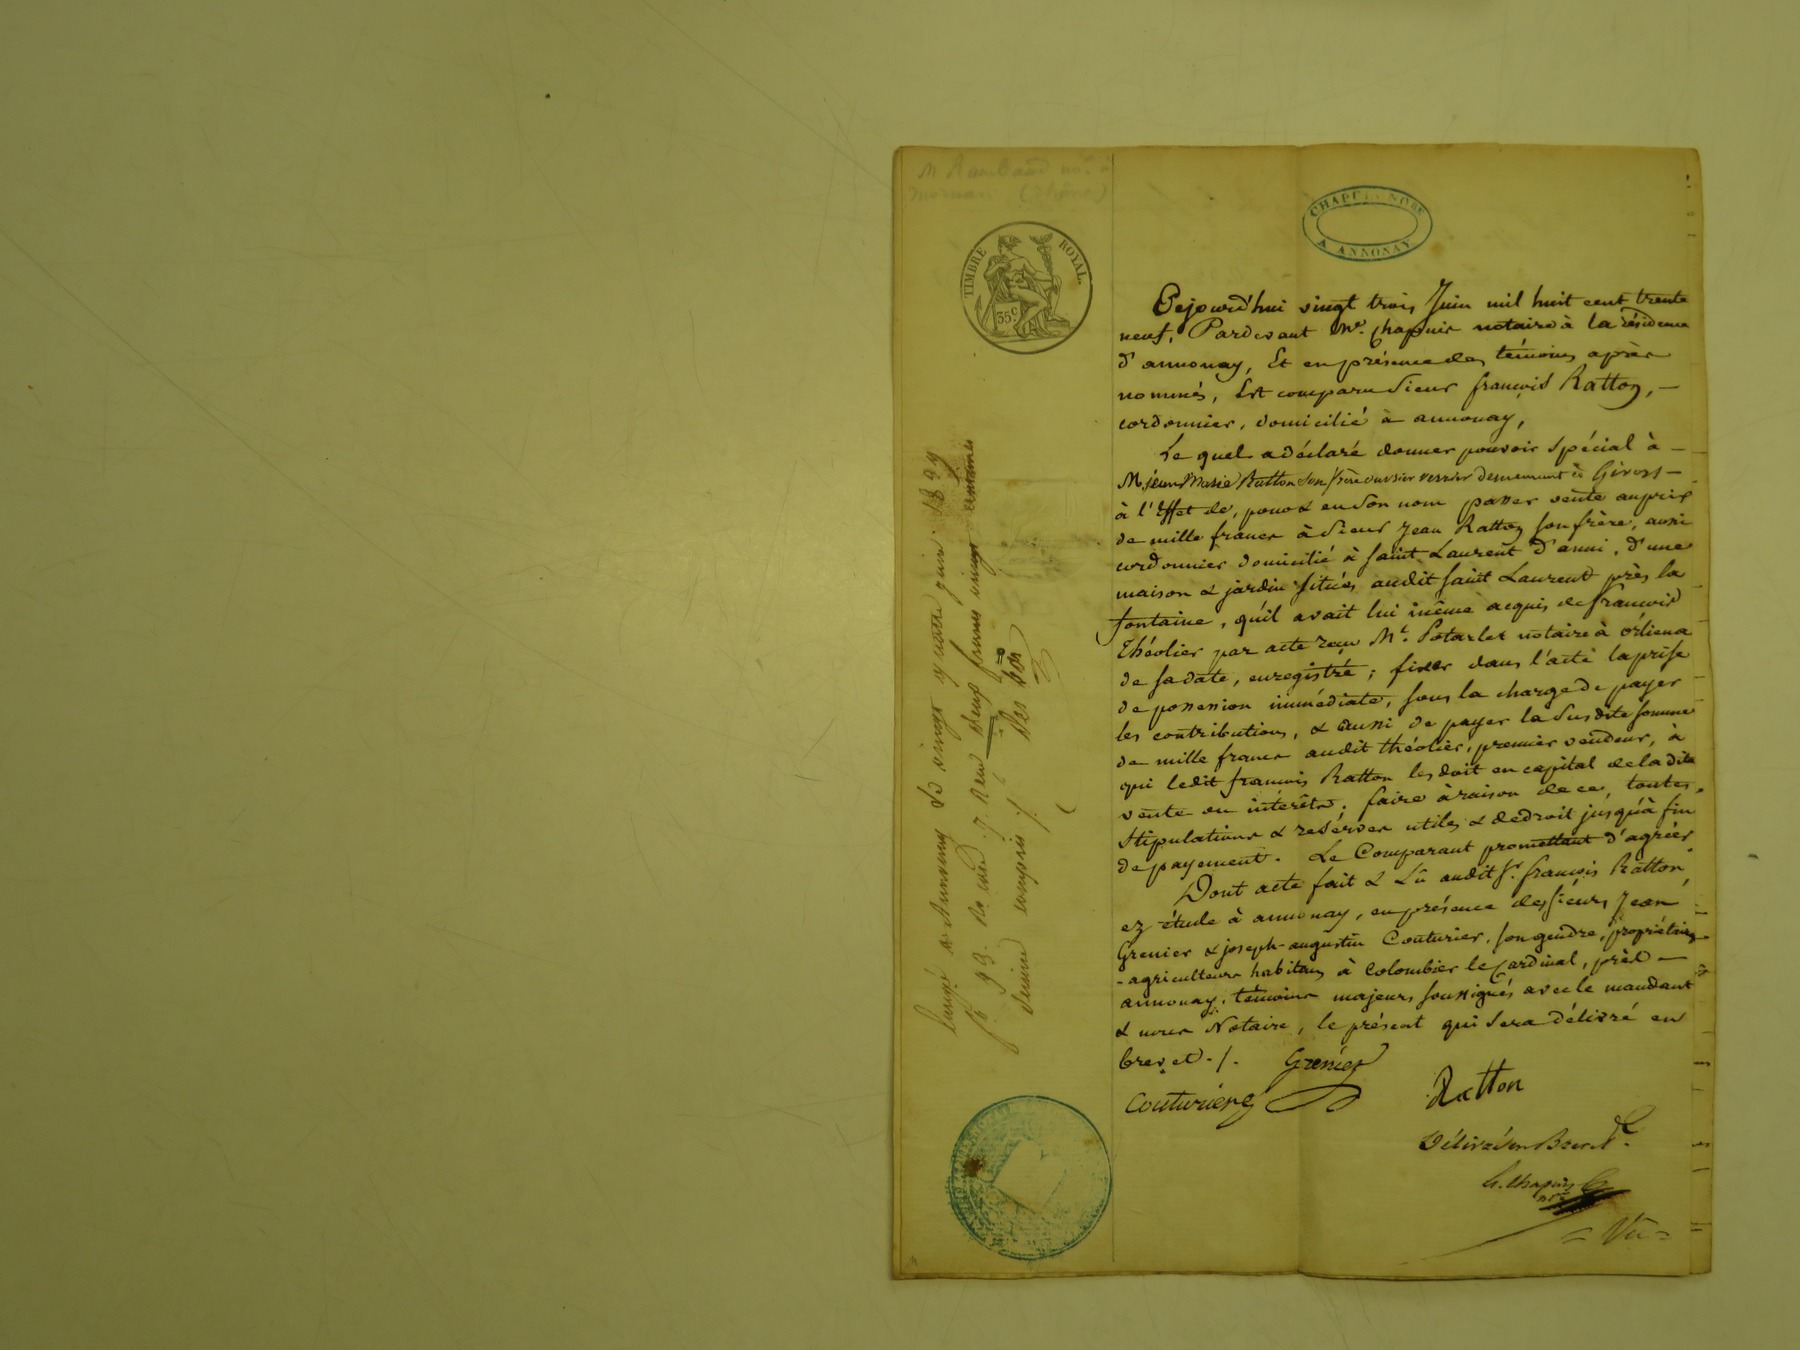 M Raimbaud no.re à
Mornan (Rhône)
TIMBRE ROYAL.
35 c.
CHAPUIS NORE
A ANNONAY
Cejourd'hui vingt trois Juin mil huit cent trente
neuf, Pardevant Me. Chapuis notaire à la résidence
d'annonay, Et en présence des témoins après
nommés, Est comparu Sieur françois Ratton, —
cordonnier, domicilié à annonay,
Le quel a déclaré donner pouvoir spécial à —
M jean Marie Ratton Son frère ouvrier verrier demeurant à Givors —
à l'Effet de, pour & en Son nom passer vente au prix
de mille francs à Sieur Jean Ratton son frère, aussi
cordonnier domicilié à saint Laurent d'anni, d'une
maison & jardin situés audit saint Laurent près la
fontaine, qu'il avait lui même acquis de françois
Théolier par acte reçu Me. notaire à orliena
de sa date, enregistré; fixer dans l'acte la prise
de possession immédiate, sous la charge de payer
les contributions, & aussi de payer la Susdite somme
de mille francs audit théolier, premier vendeur, à
qui ledit françois Ratton les doit en capital de la dite
vente ou intérêts. faire à raison de ce, toutes
Stipulations & reserves utiles & de droit jusqu'à fin
de payement. Le Comparant promettant d'agréer
Dont acte fait & Lû audit Sr. françois Ratton
ez étude à annonay, en présence des sieurs Jean
Grenier & joseph-augustin Couturier, son gendre, propriétaires
-agriculteurs habitans à Colombier le Cardinal, près —
annonay, témoins majeurs soussignés avec le mandant
& nous Notaire, le présent qui sera délivré en
brevet ./.
Grenier
Couturier
Ratton
Délivré en Brevet.
Chapuis
nore
= Vu =
à Annonay le vingt quatre juin 1839
fo 93. Ro case 7. Reçu deux francs vingt centimes
décime compris ./.